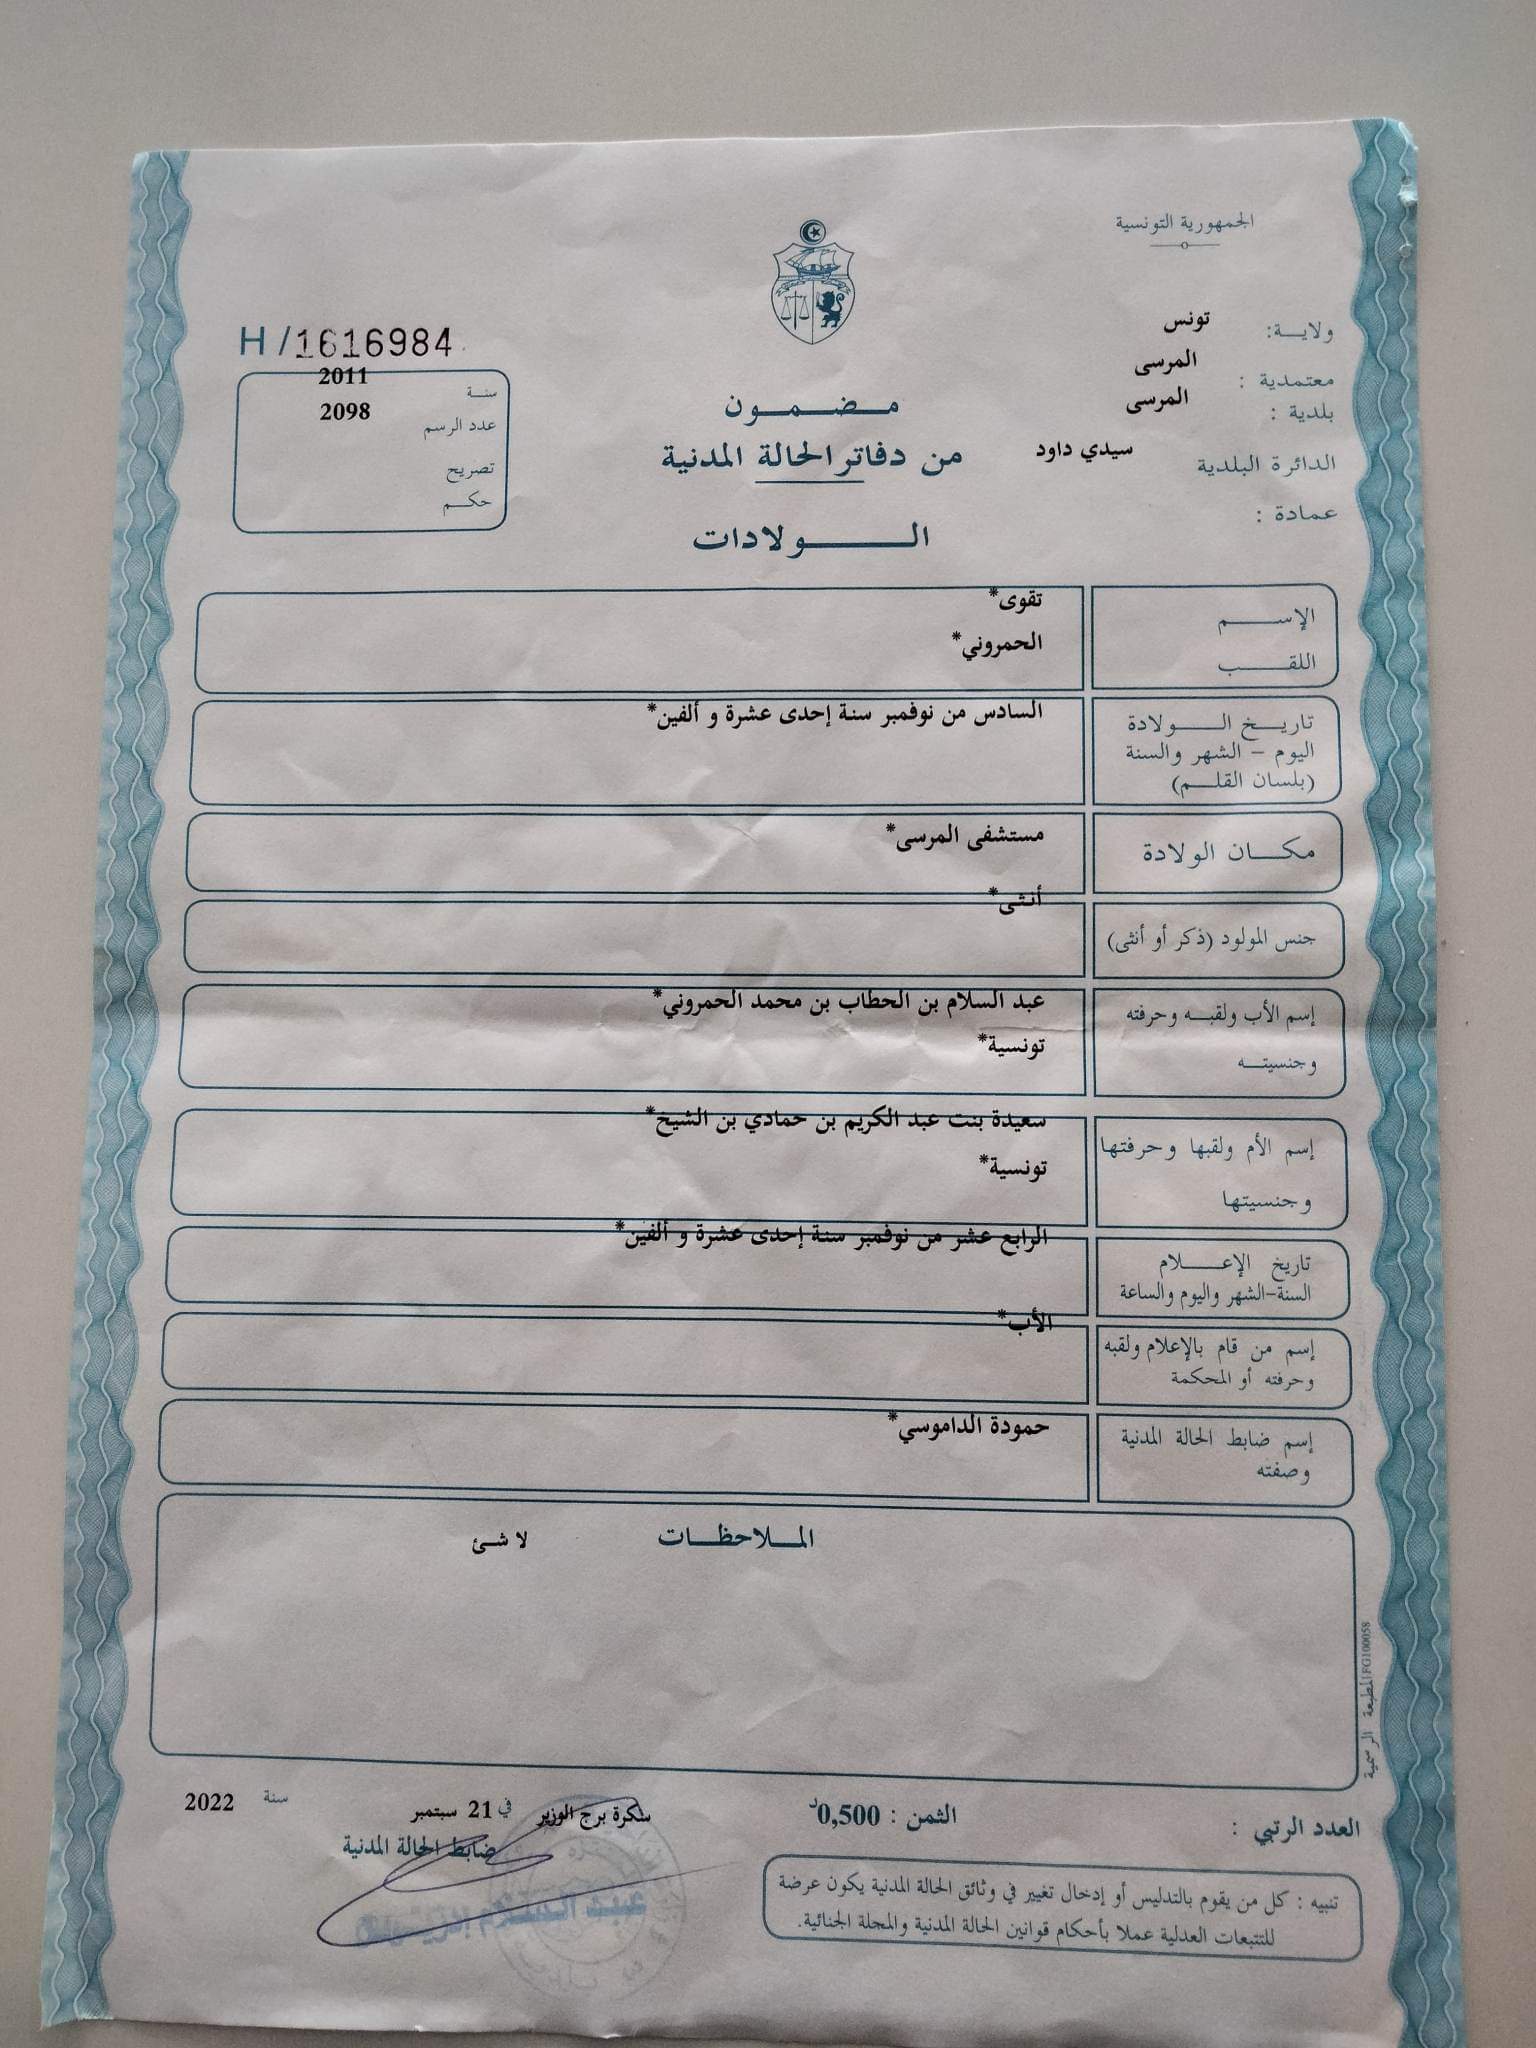 الجمهورية التونسية
ولايـــة: تونس
معتمدية : المرسى
بلدية : المرسى
الدائرة البلدية سيدي داود
عمادة :
H /1616984
سنة 2011
عدد الرسم 2098
تصريح
حكم
مضمون
من دفاتر الحالة المدنية
الولادات
الإسم تقوى*
اللقب الحمروني*
تاريخ الولادة السادس من نوفمبر سنة إحدى عشرة و ألفين*
اليوم – الشهر والسنة
(بلسان القلم)
مكان الولادة مستشفى المرسى*
جنس المولود (ذكر أو أنثى) أنثى*
إسم الأب ولقبه وحرفته عبد السلام بن الحطاب بن محمد الحمروني*
وجنسيته تونسية*
إسم الأم ولقبها وحرفتها سعيدة بنت عبد الكريم بن حمادي بن الشيخ*
وجنسيتها تونسية*
تاريخ الإعلام الرابع عشر من نوفمبر سنة إحدى عشرة و ألفين*
السنة-الشهر واليوم والساعة
إسم من قام بالإعلام ولقبه الأب*
وحرفته أو المحكمة
إسم ضابط الحالة المدنية حمودة الداموسي*
وصفته
الملاحظات لا شئ
المطبعة الرسمية IFG100058
العدد الرتبي :
الثمن : 0,500د
سكرة برج الوزير في 21 سبتمبر سنة 2022
ضابط الحالة المدنية
تنبيه : كل من يقوم بالتدليس أو إدخال تغيير في وثائق الحالة المدنية يكون عرضة
للتتبعات العدلية عملا بأحكام قوانين الحالة المدنية والمجلة الجنائية.